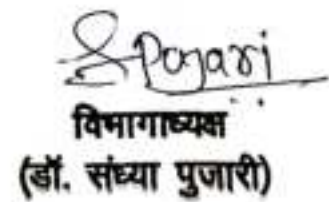 S Pojari
विभागाध्यक्ष
(डॉ. संध्या पुजारी)